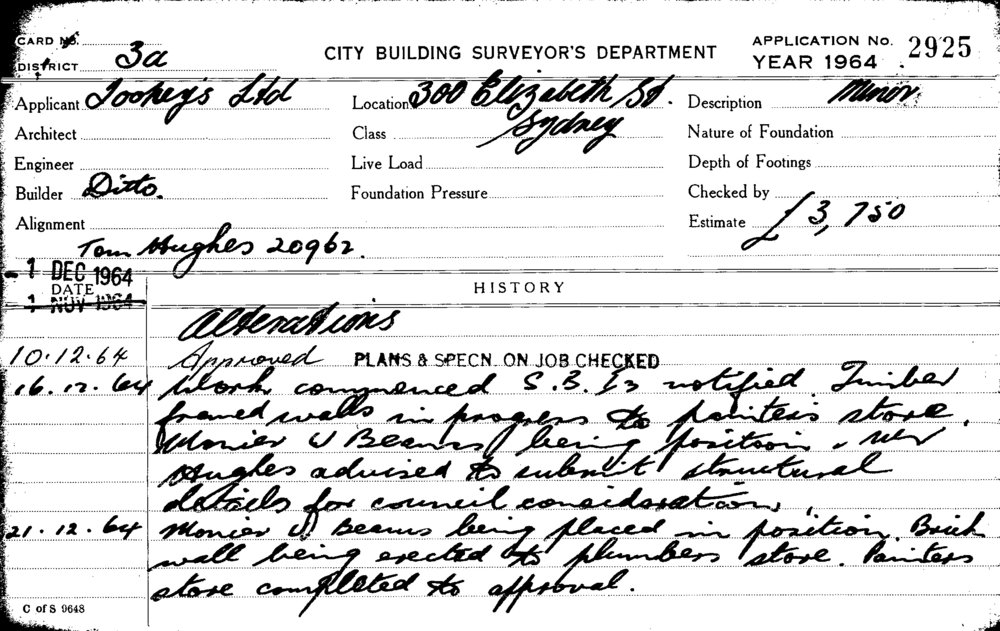 CARD No.
DISTRICT 3a
CITY BUILDING SURVEYOR'S DEPARTMENT
APPLICATION No. 2925
YEAR 1964
Applicant Tooheys Ltd
Location 300 Elizabeth St.
Sydney
Description Minor
Architect
Class
Nature of Foundation
Engineer
Live Load
Depth of Footings
Builder Ditto.
Foundation Pressure
Checked by
Alignment
Estimate £3,750
Tom Hughes 20962.
- 1 DEC 1964
DATE
1 NOV 1964
HISTORY
Alterations
10.12.64 Approved PLANS & SPECN. ON JOB CHECKED
16.12.64 Work commenced S.B.I's notified. Timber
framed walls in progress to painters store.
Monier U Beams being position. Mr
Hughes advised to submit structural
details for council consideration.
21.12.64 Monier U Beams being placed in position. Brick
wall being erected to plumbers store. Painters
store completed to approval.
C of S 9648